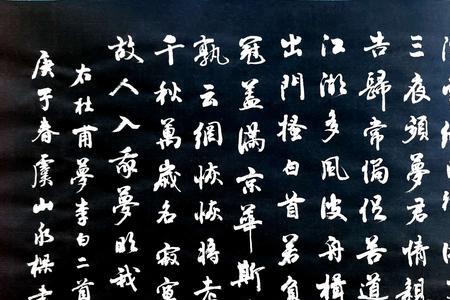 三夜頻夢君情親
告歸常侷促苦道
江湖多風波舟楫
出門搔白首若負
冠蓋滿京華斯
孰云網恢恢將老
千秋萬歲名寂寞
故人入我夢明我
右杜甫夢李白二首
庚子春虞山